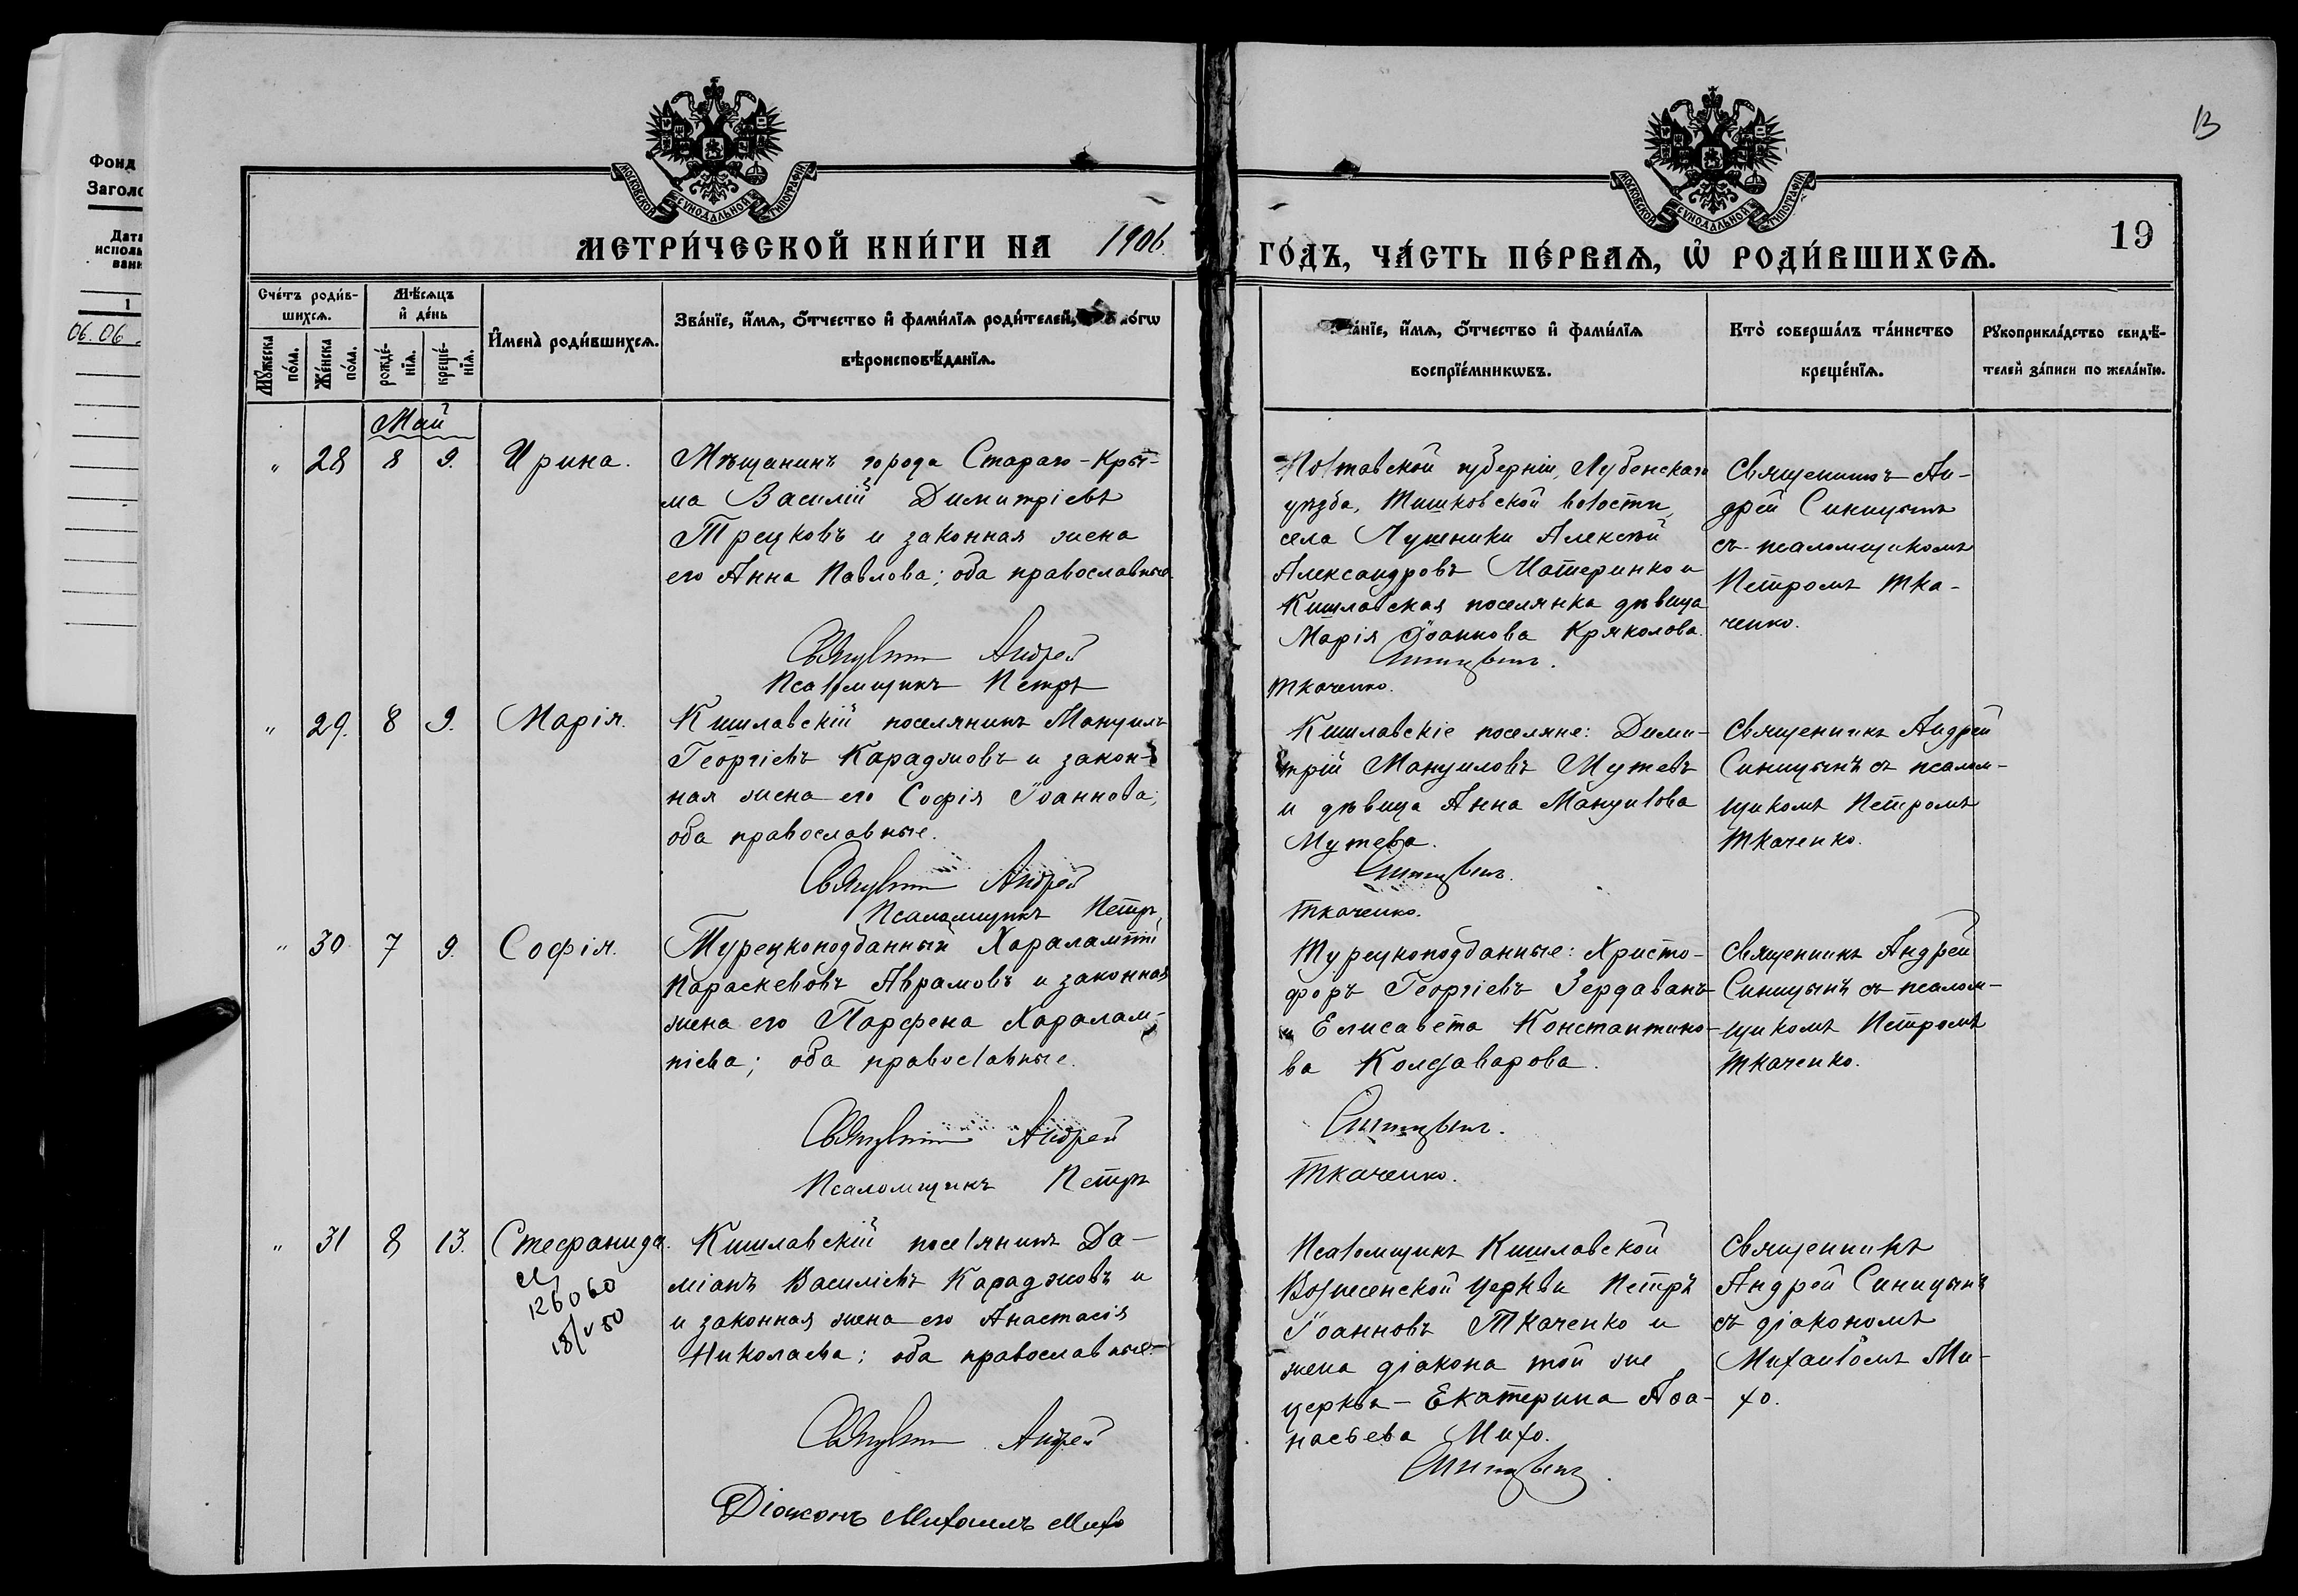 Фонд
Заголо
Дата
исполь
вани
1
06.06.
13
19
МОСКОВСКОЙ СѴНОДАЛЬНОЙ ТИПОГРАФІИ
МОСКОВСКОЙ СѴНОДАЛЬНОЙ ТИПОГРАФІИ
МЕТРИ́ЧЕСКОЙ КНИ́ГИ НА 1906. ГО́ДЪ, ЧА́СТЬ ПЕ́РВАѦ, Ѡ҆ РОДИ́ВШИХСѦ.
Сче́тъ роди́в-
шихсѧ.
Мꙋ́жеска
по́ла.
Же́нска
по́ла.
Мѣ́сѧцъ
и҆ де́нь
рожде́-
нїѧ.
креще́-
нїѧ.
И҆мена̀ роди́вшихсѧ.
Зва́нїе, и҆́мѧ, ѻ҆́тчество и҆ фами́лїѧ роди́телей,
вѣроисповѣ́данїѧ.
а́нїе, и҆́мѧ, ѻ҆́тчество и҆ фами́лїѧ
воспрїе́мникѡвъ.
Кто̀ соверша́лъ та́инство
креще́нїѧ.
Рꙋкоприкла́дство свидѣ́-
телей за́писи по жела́нїю.
Май
„ 28 8 9. Ирина.
Мѣщанинъ города Стараго-Кры-
ма Василій Димитріевъ
Трецковъ и законная жена
его Анна Павлова; оба православные
Священникъ Андрей
Псаломщикъ Петръ
Полтавской губерніи, Лубенскаго
уѣзда, Тишковской волости,
села Лушники Алексѣй
Александровъ Материнко и
Кишлавская поселянка дѣвица
Марія Іоаннова Кряколова.
Синицынъ.
Ткаченко.
Священникъ Ан-
дрей Синицынъ
съ псаломщикомъ
Петромъ Тка-
ченко.
„ 29. 8 9. Марія.
Кишлавскій поселянинъ Мануилъ
Георгіевъ Караджовъ и закон-
ная жена его Софія Іоаннова;
оба православные.
Священникъ Андрей
Псаломщикъ Петръ
Кишлавскіе поселяне: Дими-
трій Мануиловъ Мутевъ
и дѣвица Анна Мануилова
Мутева.
Синицынъ.
Ткаченко.
Священникъ Андрей
Синицынъ съ псалом-
щикомъ Петромъ
Ткаченко.
„ 30 7 9. Софія.
Турецкоподданный Харалампій
Параскевовъ Аврамовъ и законная
жена его Парфена Харалам-
піева; оба православные.
Священникъ Андрей
Псаломщикъ Петръ
Турецкоподданные: Христо-
форъ Георгіевъ Зердаванъ
и Елисавета Константино-
ва Колдаварова.
Синицынъ.
Ткаченко.
Священникъ Андрей
Синицынъ съ псалом-
щикомъ Петромъ
Ткаченко.
„ 31 8 13. Стефанида.
126060
18/V 50
Кишлавскій поселянинъ Да-
міанъ Василіевъ Караджовъ и
и законная жена его Анастасія
Николаева; оба православные.
Священникъ Андрей
Діаконъ Михаилъ Михо
Псаломщикъ Кишлавской
Вознесенской церкви Петръ
Іоанновъ Ткаченко и
жена діакона той же
церкви - Екатерина Аѳа-
насьева Михо.
Синицынъ.
Священникъ
Андрей Синицынъ
съ діакономъ
Михаиломъ Ми-
хо.